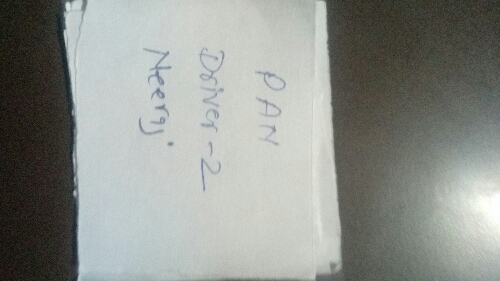 PAN
Driver-2
Neeraj